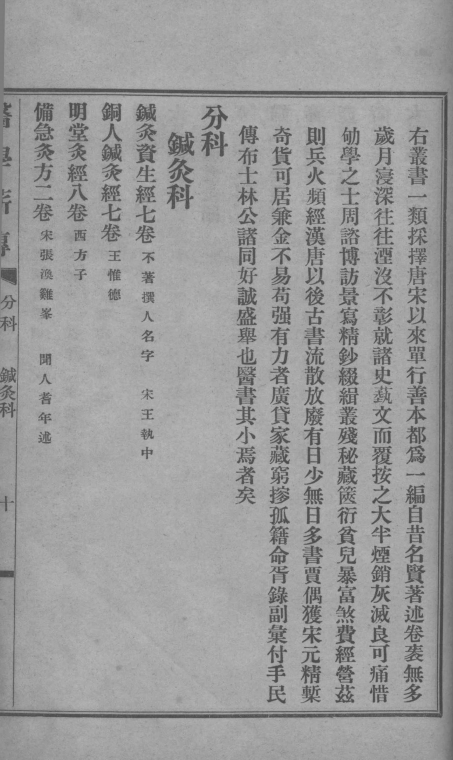 右叢書一類採擇唐宋以來單行善本都爲一編自昔名賢著述卷袠無多
歲月寖深往往湮沒不彰就諸史藝文而覆按之大半煙銷灰滅良可痛惜
劬學之士周諮博訪景寫精鈔綴緝叢殘秘藏篋衍貧兒暴富煞費經營茲
則兵火頻經漢唐以後古書流散放廢有日少無日多書賈偶獲宋元精槧
奇貨可居兼金不易苟强有力者廣貸家藏窮搜孤籍命胥錄副彙付手民
傳布士林公諸同好誠盛舉也醫書其小焉者矣
分科
鍼灸科
鍼灸資生經七卷 不著撰人名字 宋王執中
銅人鍼灸經七卷 王惟德
明堂灸經八卷 西方子
備急灸方二卷 宋張渙難峯 聞人耆年述
分科 鍼灸科 十